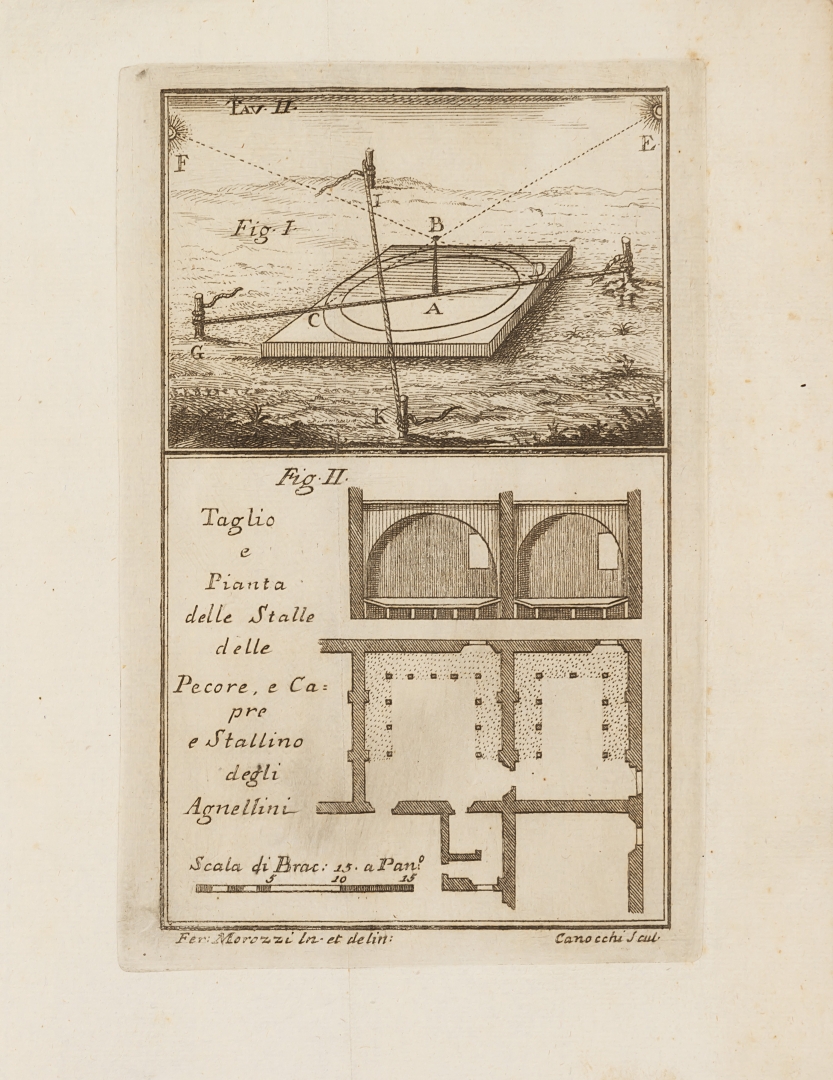 TAV. II.
F
E
I
Fig. I.
B
H
C
A
G
K
Fig. II.
Taglio
e
Pianta
delle Stalle
delle
Pecore, e Ca=
pre
e Stallino
degli
Agnellini
Scala di Brac: 15. a Pan.º
5 10 15
Fer: Morozzi In. et delin:
Canocchi Scul.